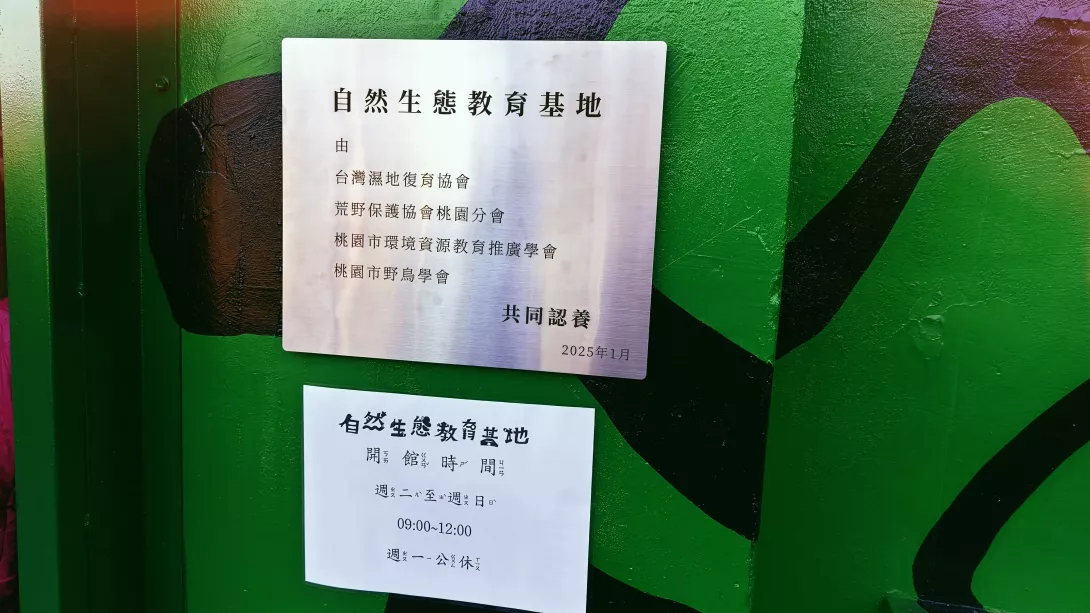 自然生態教育基地
由
台灣濕地復育協會
荒野保護協會桃園分會
桃園市環境資源教育推廣學會
桃園市野鳥學會
共同認養
2025年1月
自然生態教育基地
開館時間
週二至週日
09:00~12:00
週一公休